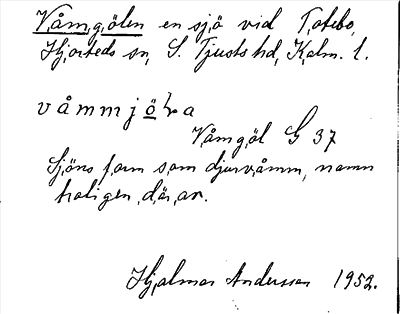 Våmgölen en sjö vid Totebo,
Hjorteds sn, S. Tjusts hd, Kalm. l.
våmmjöɫa
Våmgöl G 37
Sjöns form som djurvåmm, namn
holigen, där, av.
Hjalmar Andersson 1952.